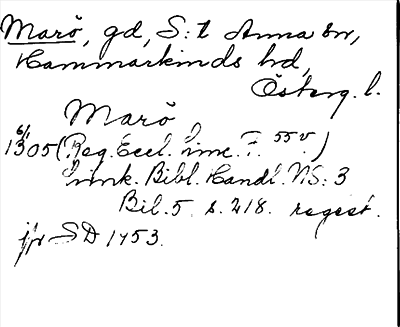 Marö, gd, S:t Anna sn,
Hammarkinds hd,
Österg. l.
Marö
6/1 1305 (Reg. Eccl. Linc. F. 55 v)
Link. Bibl. Handl. NS: 3
Bil. 5. s. 218. regest.
jfr SD 1453.